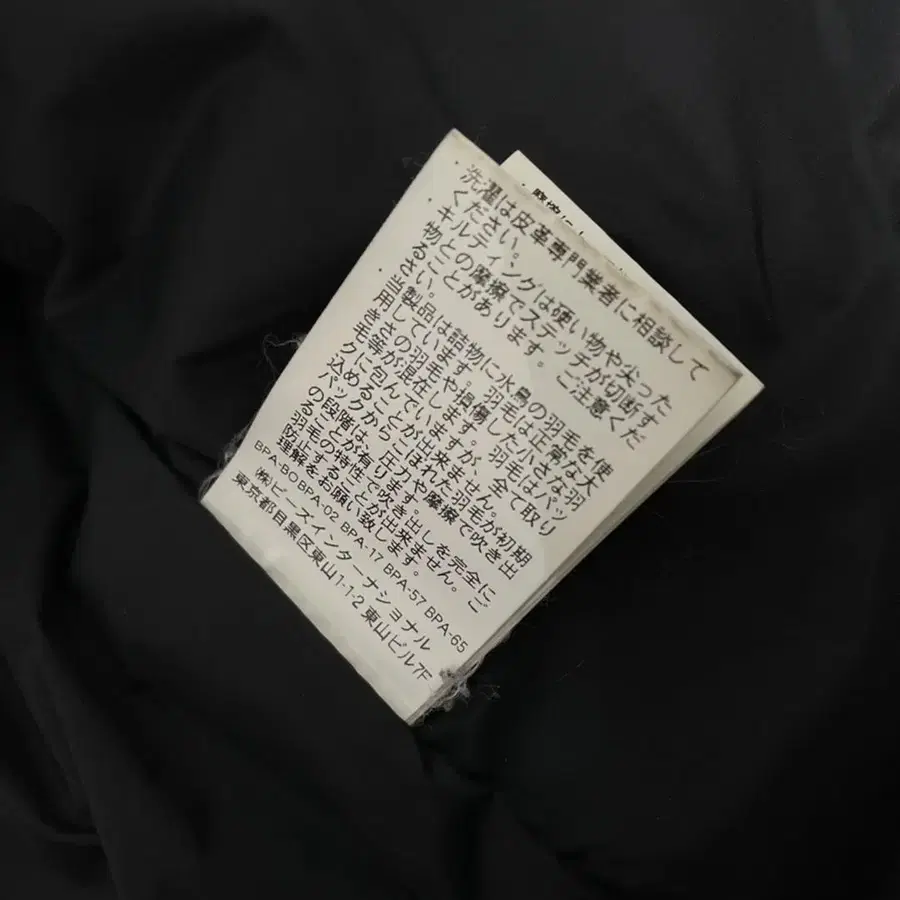 ・洗濯は皮革専門業者に相談して
ください。
キルティングは硬い物や尖った
物との摩擦でステッチが切断す
ることがあります。ご注意くだ
さい。
当製品は詰物に水鳥の羽毛を使
用しています。羽毛は正常な大
きさの羽毛や損傷した小さな羽
毛等が混在します。羽毛はパッ
クに包んでいますが、全て取り
込めることが出来ません。
パックからこぼれた羽毛が初期
の段階は、圧力や摩擦で吹き出
ることが有ります。
羽毛の特性で吹き出しを完全に
防止することが出来ません。ご
理解をお願い致します。
BPA-BO BPA-02 BPA-17 BPA-57 BPA-65
㈱ビーズインターナショナル
東京都目黒区東山1-1-2 東山ビル7F